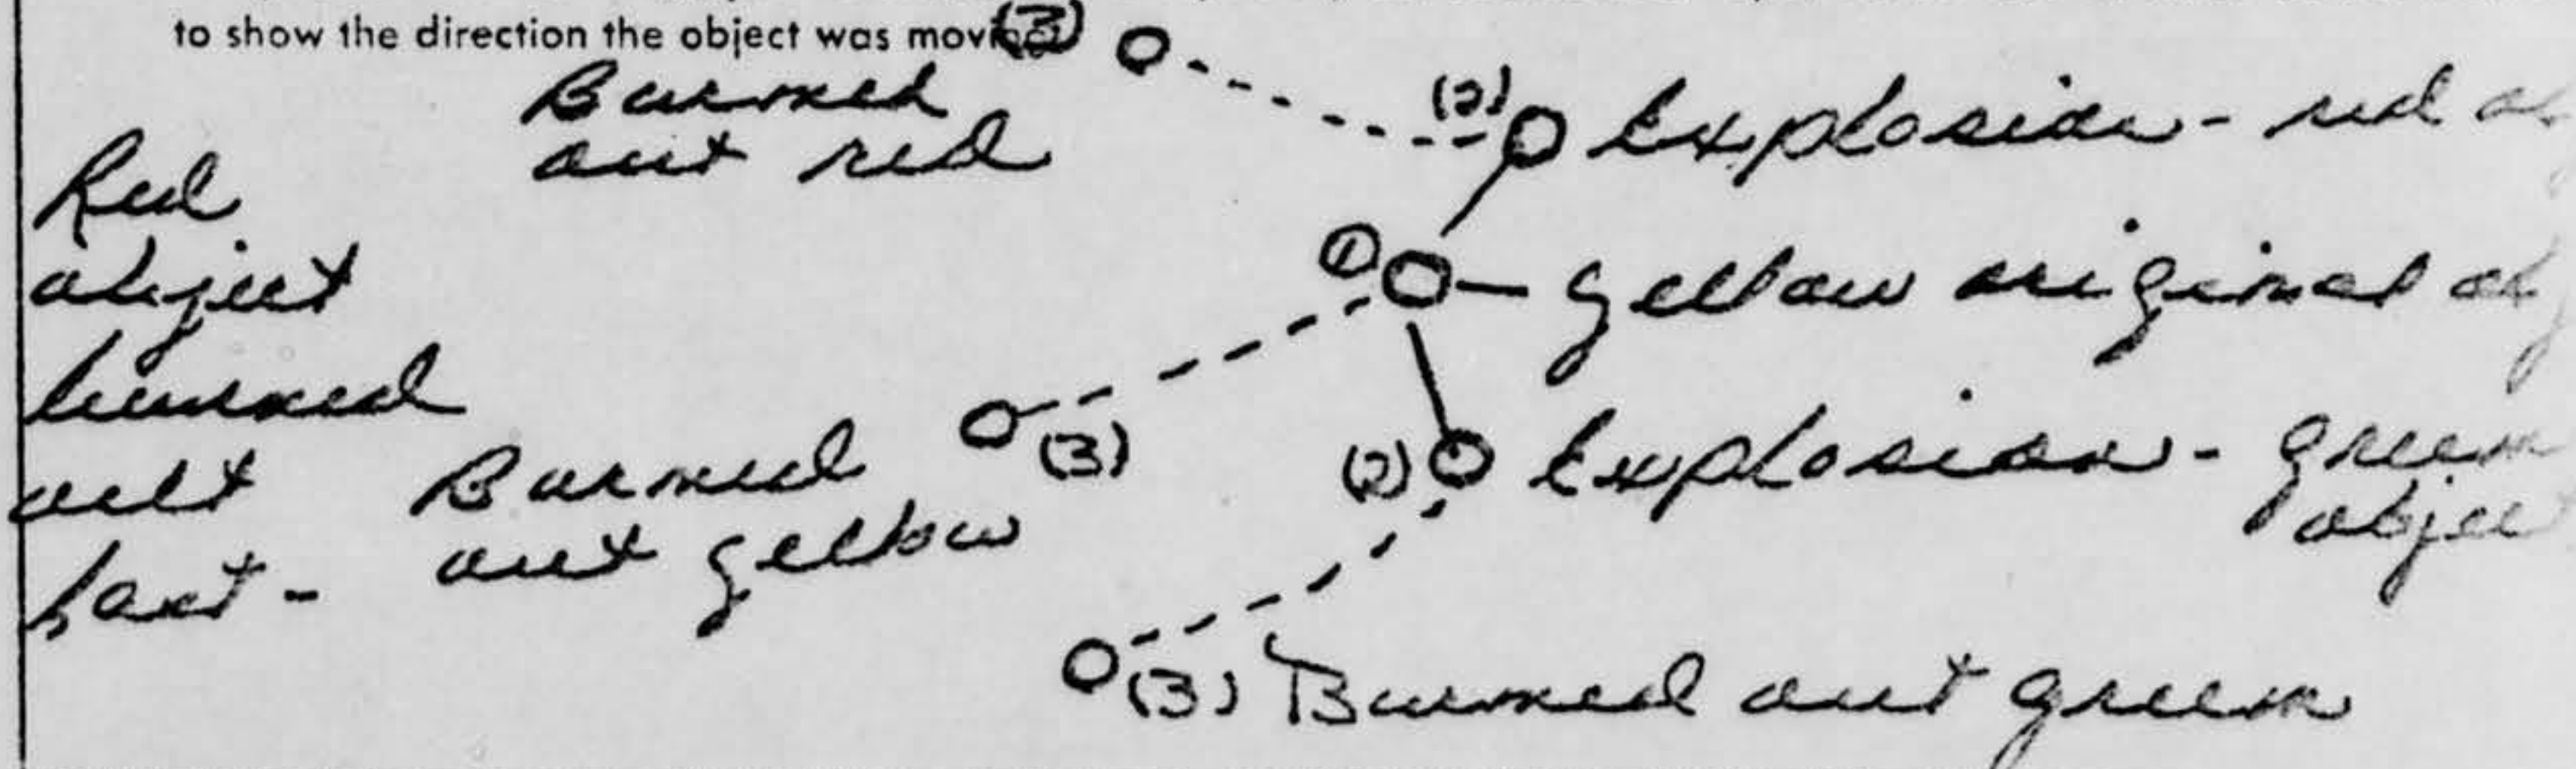 to show the direction the object was moving
(3)
Burned
out red
(2) Explosion - red
Red
object
burned
out
last -
(1) - yellow original
(3)
Burned
out yellow
(2) Explosion - green
objec
(3) Burned out green